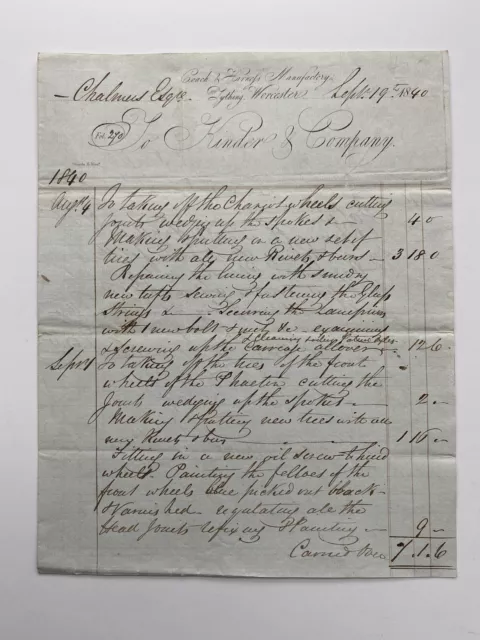 Coach & Harness Manufactory
Tything Worcester Sept. 19th 1840
— Chalmers Esqre.
Fol. 270
To Kinder & Company.
1840
Augt 4 To taking off the Chariot wheels cutting
Joints wedging up the spokes & — 4 0
Making & putting in a new set of
tires with all new Rivets & burs — 3 18 0
Repairing the lining with sundry
new tufts sewing & fastening the Glass
Strings & — Securing the Lamp irons
with 1 new bolt & nuts &c examining
& Cleaning
& screwing up the Carriage all over — 12 6
Sepr 1 To taking off the tires of the front
wheels of the Phaeton cutting the
Joints wedging up the spokes — 2 —
Making & putting new tires with all
new Rivets & burs — 1 16 —
Fitting in a new oil screw behind
wheels. Painting the felloes of the
front wheels picked out black
& Varnished — regulating all the
Lead Joints refixing & Painting — 9 —
Carried over 7 . 1 . 6